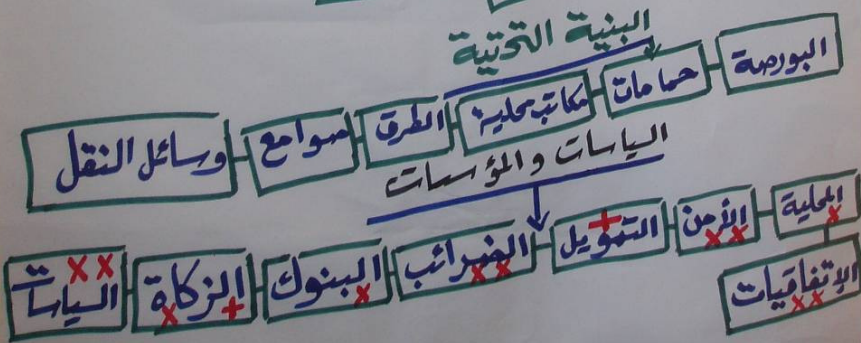 البنية التحتية
البورصة حمامات مكاتب محلية الطرق صوامع وسائل النقل
السياسات والمؤسسات
المحلية الأمن التمويل الضرائب البنوك الزكاة السياسات
الإتفاقيات